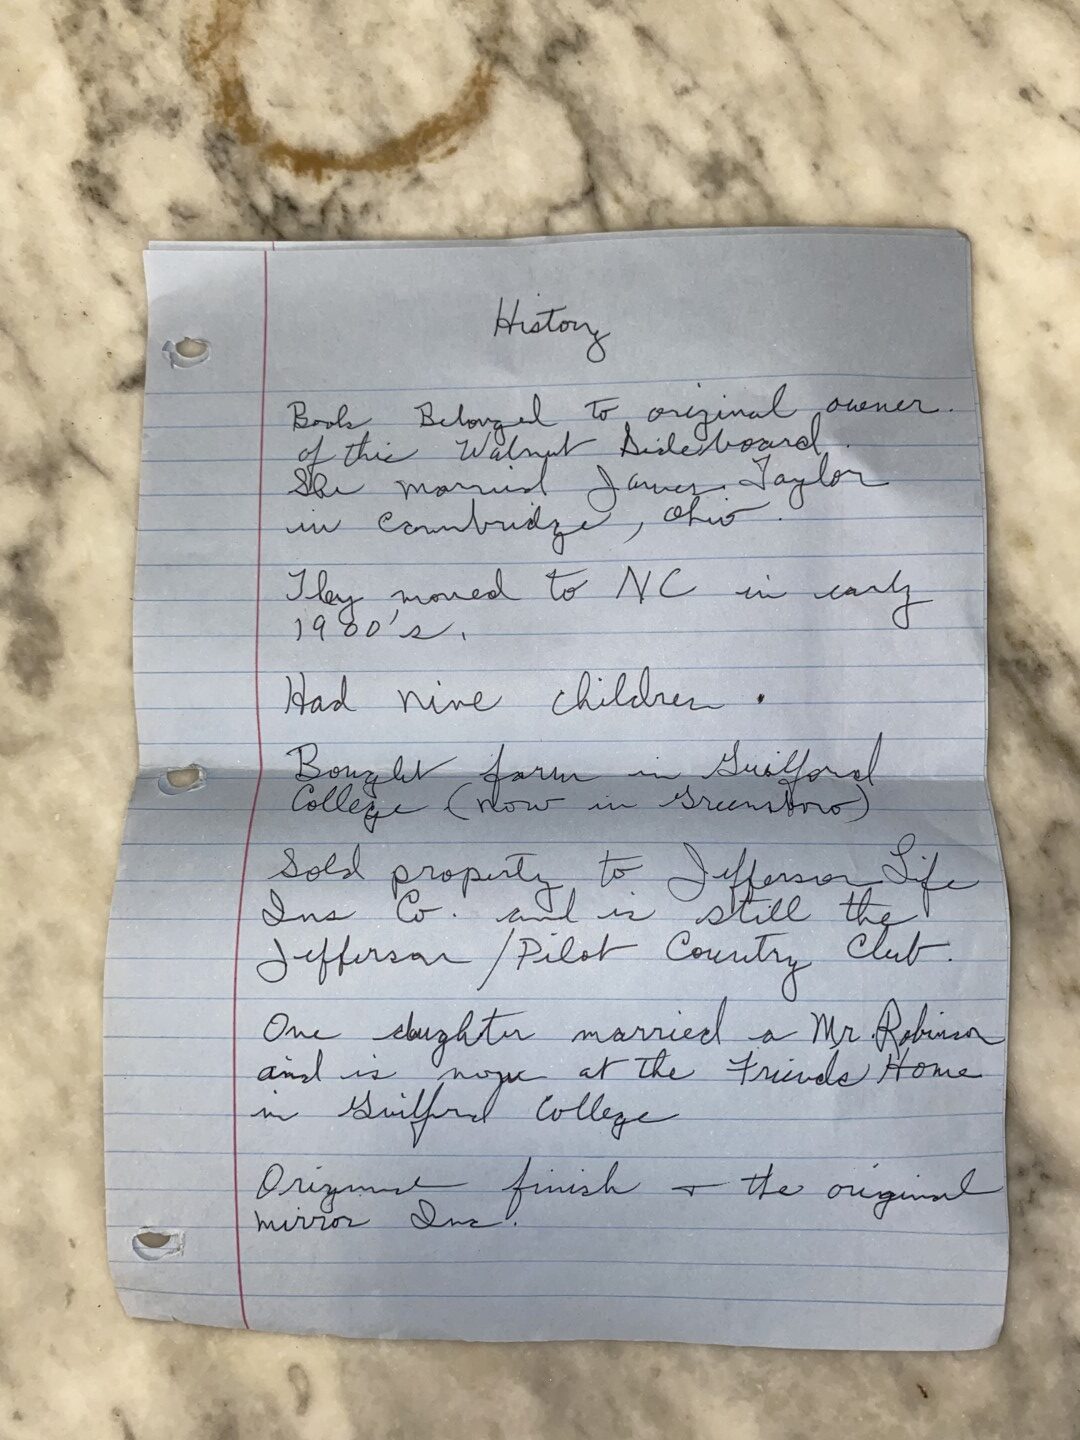 History
Book Belonged to original owner.
of this Walnut Sideboard.
She married James Taylor
in Cambridge, Ohio.
They moved to NC in early
1900's.
Had nine children.
Bought farm in Guilford
College (now in Greensboro)
Sold property to Jefferson Life
Ins Co. and is still the
Jefferson/Pilot Country Club.
One daughter married a Mr. Robinson
and is now at the Friends Home
in Guilford College
Original finish + the original
mirror Inc.